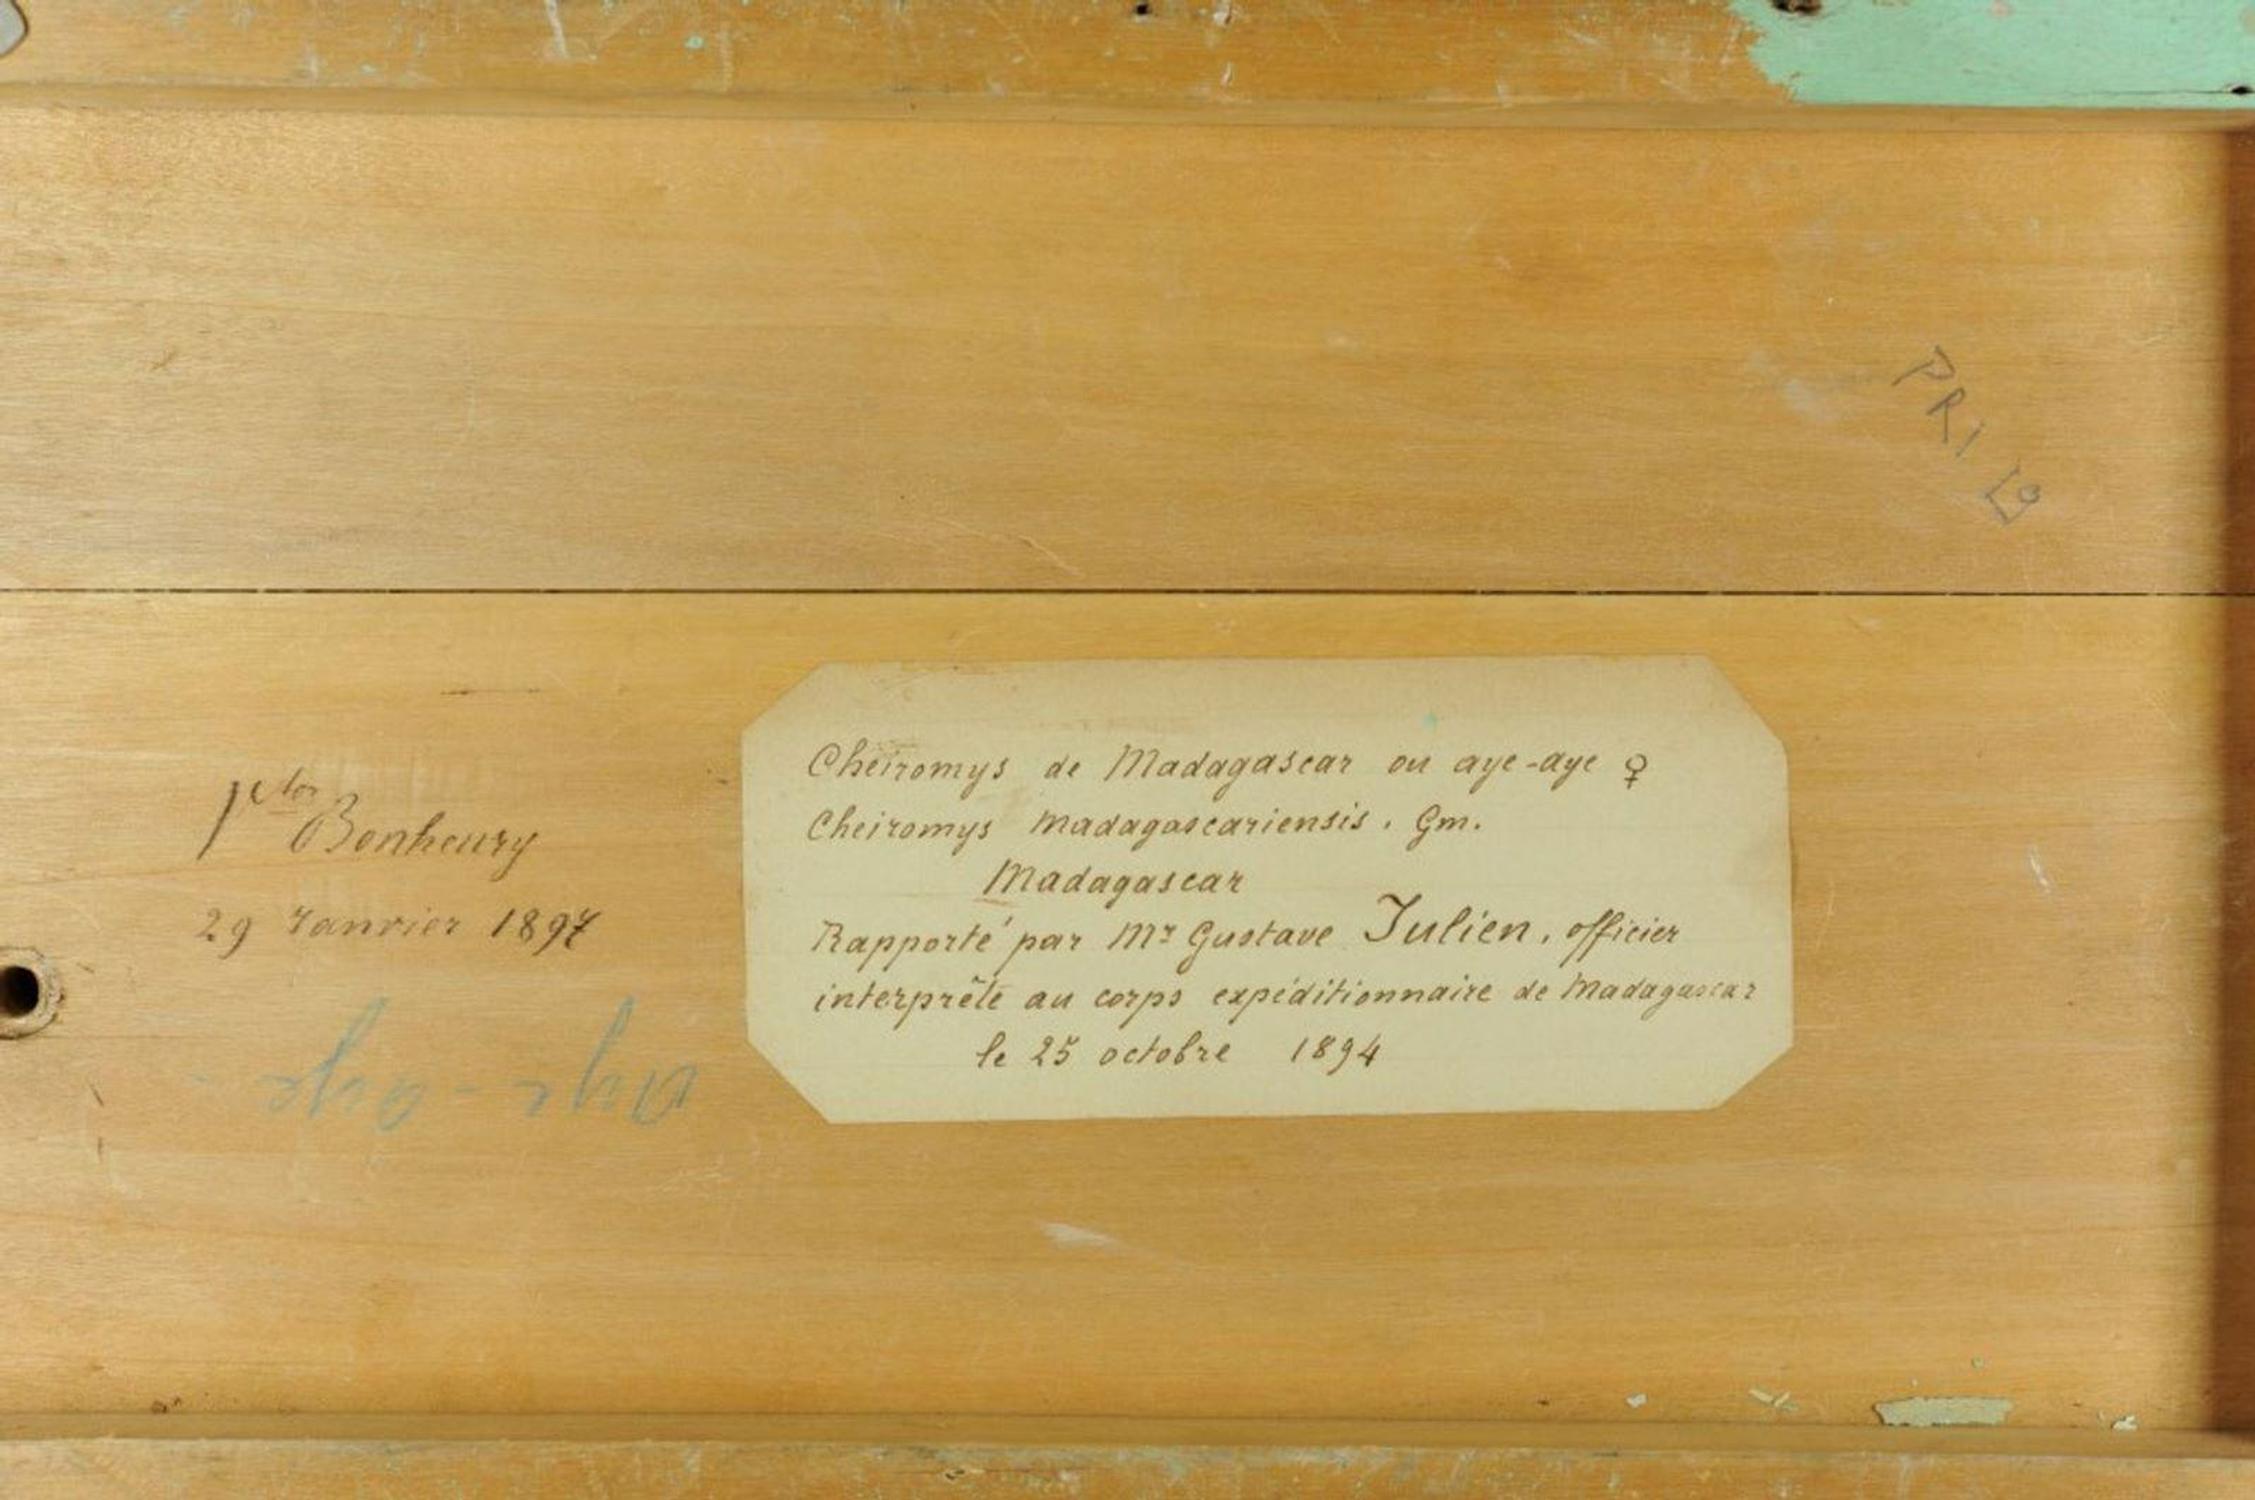 PRI 19
Bonheury
29 Janvier 1897
Aye-aye
Cheiromys de Madagascar ou aye-aye ♀
Cheiromys madagascariensis. Gm.
Madagascar
Rapporté par Mr Gustave Julien, officier
interprête au corps expéditionnaire de Madagascar
le 25 octobre 1894